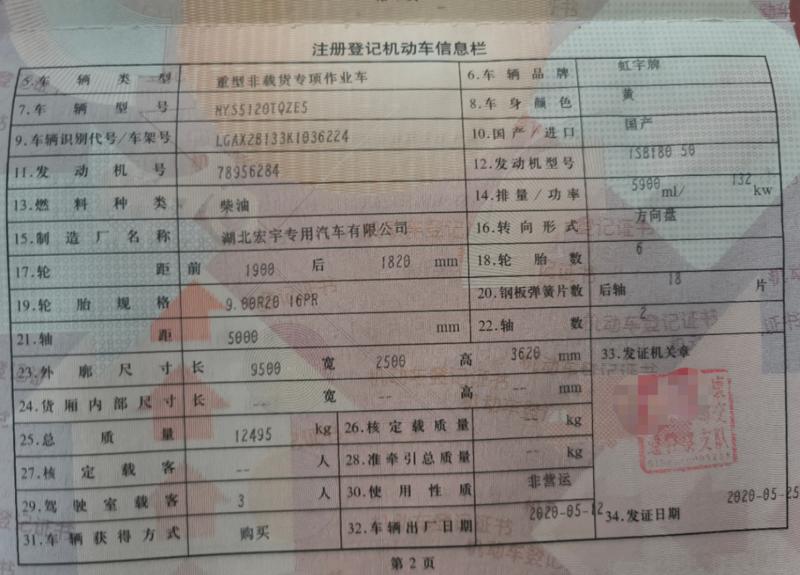 注册登记机动车信息栏
5.车辆类型 重型非载货专项作业车 6.车辆品牌 虹宇牌
7.车辆型号 HYS5120TQZE5 8.车身颜色 黄
9.车辆识别代号/车架号 LGAX2B133K1036224 10.国产/进口 国产
11.发动机号 78956284 12.发动机型号 ISB180 50
13.燃料种类 柴油 14.排量/功率 5900 ml/ 132 kw
15.制造厂名称 湖北宏宇专用汽车有限公司 16.转向形式 方向盘
17.轮距 前 1900 后 1820 mm 18.轮胎数 6
19.轮胎规格 9.00R20 16PR 20.钢板弹簧片数 后轴 18 片
21.轴距 5000 mm 22.轴数 2
23.外廓尺寸 长 9500 宽 2500 高 3620 mm 33.发证机关章
24.货厢内部尺寸 长 -- 宽 -- 高 -- mm
25.总质量 12495 kg 26.核定载质量 -- kg
27.核定载客 -- 人 28.准牵引总质量 -- kg
29.驾驶室载客 3 人 30.使用性质 非营运
31.车辆获得方式 购买 32.车辆出厂日期 2020-05-12 34.发证日期 2020-05-25
第2页